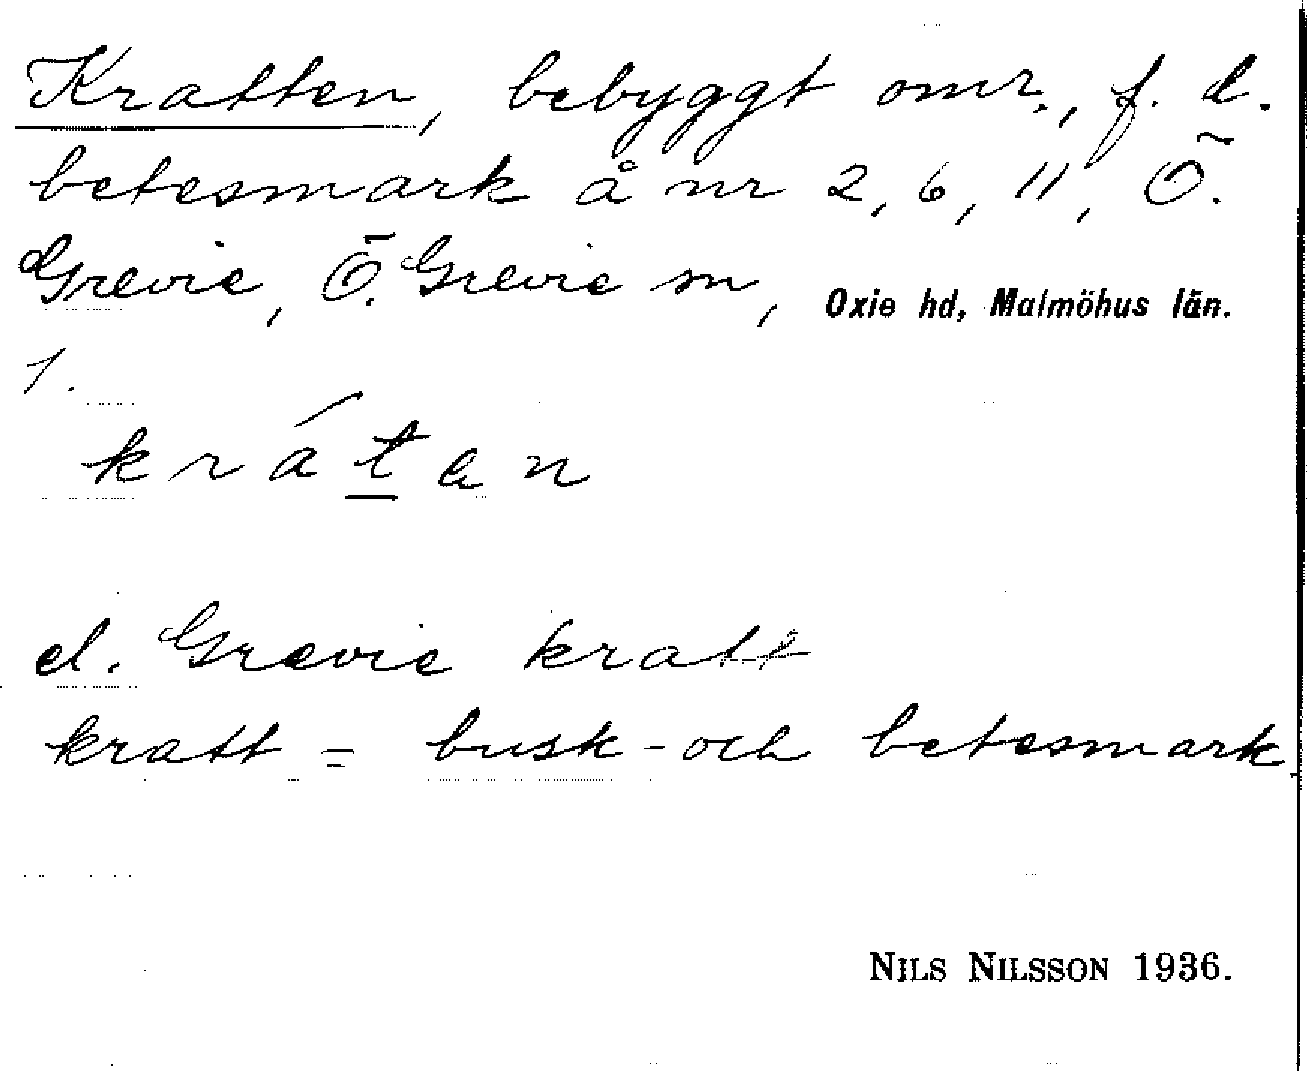 Kratten, bebyggt omr., f. d.
betesmark å nr 2, 6, 11, Ö.
Grevie, Ö. Grevie sn, Oxie hd, Malmöhus län.
1.
krátan
el. Grevie kratt
kratt = busk- och betesmark.
NILS NILSSON 1936.